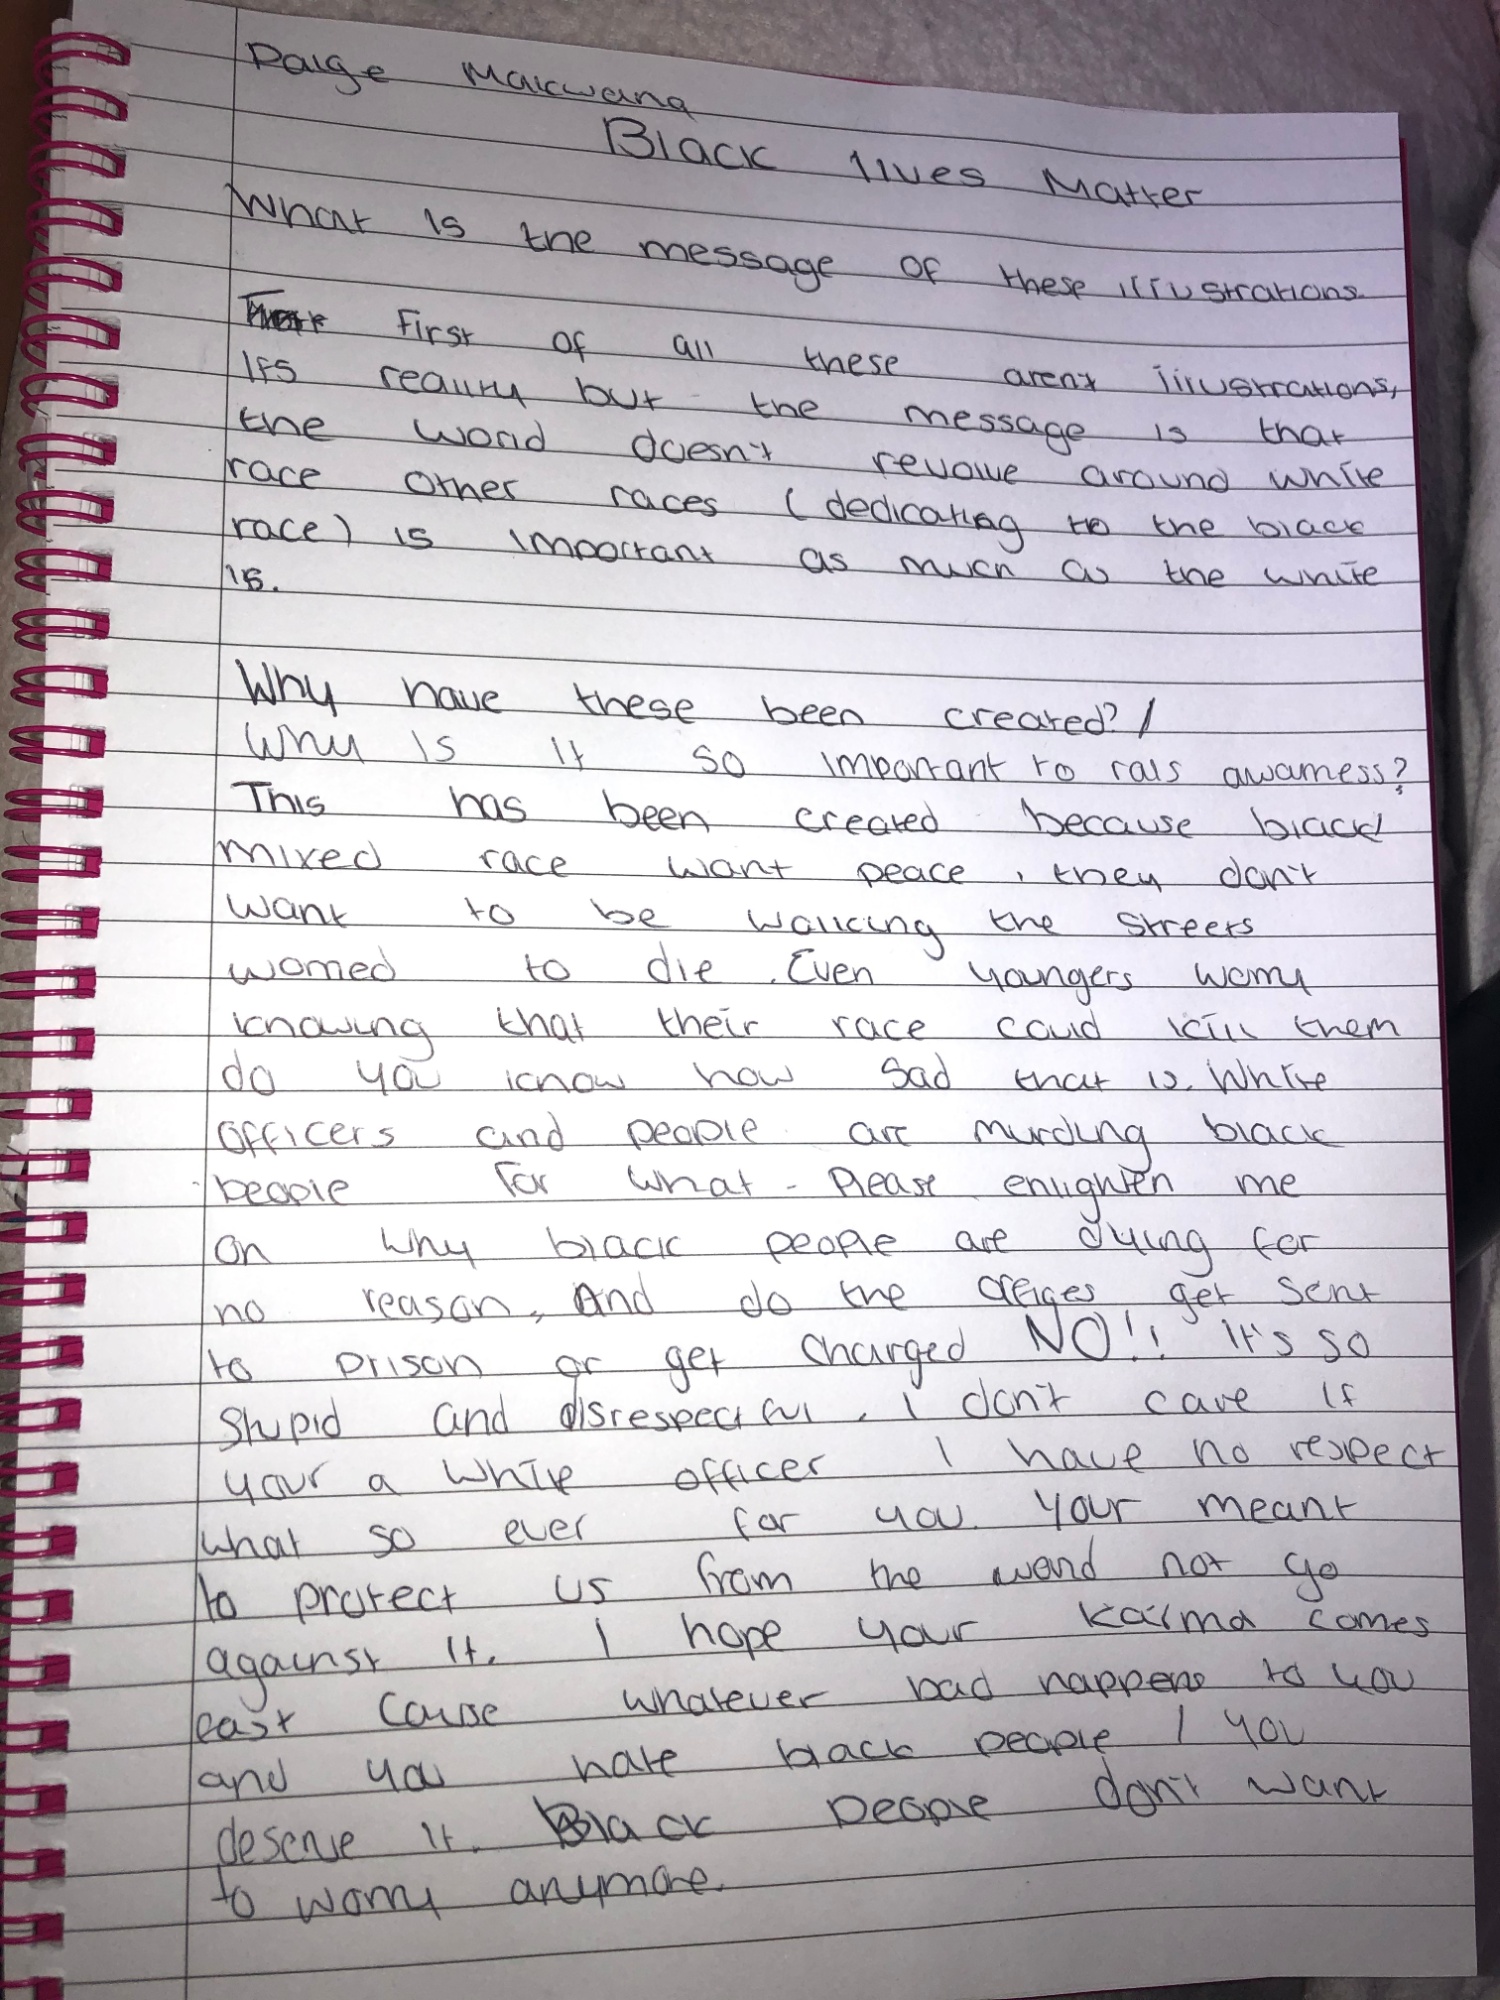 Paige Makwana
Black lives Matter
What is the message of these illustrations.
First of all these aren't illustrations,
Its reality but the message is that
the world doesn't revolve around white
race other races (dedicating to the black
race) is important as much as the white
is.
Why have these been created? /
Why is it so important to rais awarness?
This has been created because black/
mixed race want peace, they don't
want to be walking the streets
worried to die. Even youngers worry
knowing that their race could kill them
do you know how sad that is. White
officers and people are murding black
people for what. Please enlighten me
on why black people are dying for
no reason, And do the get sent
to prison or get charged NO!! It's so
stupid and disrespectful. I don't care if
your a white officer I have no respect
what so ever for you. Your meant
to protect us from the world not go
against it. I hope your karma comes
east cause whatever bad happens to you
and you hate black people / you
deserve it. Black people don't want
to worry anymore.